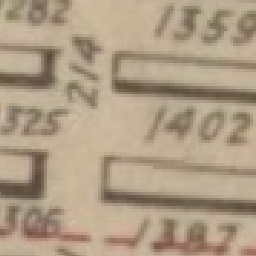 282
1359
214
325
1402
306
1387